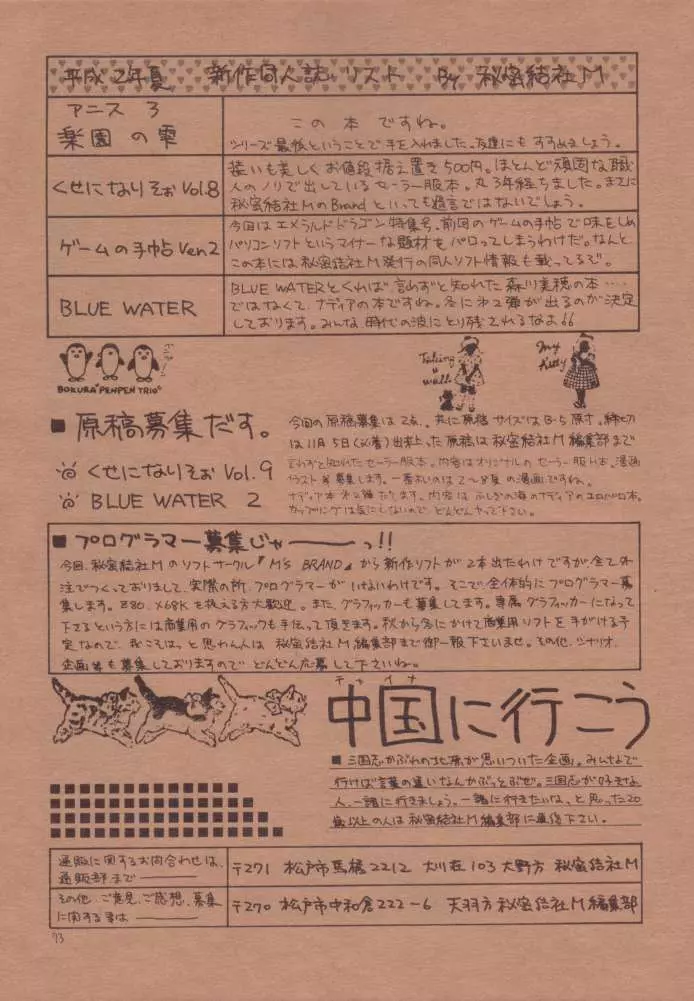 平成2年夏 新作同人誌リスト By 秘密結社M
アニス 3
楽園の雫
この本ですね。
シリーズ最後ということで手を入れました。友達にもすすめましょう。
くせになりそぉ Vol.8
装いも美しくお値段据え置き500円。ほとんど頑固な職
人のノリで出しているセーラー服本。丸3年経ちました。まさに
秘密結社MのBrandといっても過言ではないでしょう。
ゲームの手帖 Ver.2
今回はエメラルドドラゴン特集号。前回のゲームの手帖で味をしめ
パソコンソフトというマイナーな題材もパロってしまうわけだ。なんと、
この本には秘密結社M発行の同人ソフト情報も載ってるぞ。
BLUE WATER
BLUE WATERとくれば言わずと知れた森川美穂の本‥‥
ではなくて、ナディアの本ですね。冬に第2弾が出るのが決定
しております。みんな時代の波にとり残されるなよ
BOKURA PENPEN TRIO
Taking a walk
My Kitty
■原稿募集だす。
くせになりそぉ Vol.9
BLUE WATER 2
今回の原稿募集は2点。共に原稿サイズはB-5原寸。締切
は11月5日(必着)出来上った原稿は秘密結社M編集部まで
言わずと知れたセーラー服本。内容はオリジナルのセーラー服H本。漫画
イラスト等募集します。一番欲しいのは2〜8頁の漫画ですね。
ナディア本第2弾だします。内容はふしぎの海のナディアのエロパロ本。
カップリングは気にしないので、どんどんやって下さい。
■プログラマー募集じゃ──っ!!
今回、秘密結社Mのソフトサークル『M's BRAND』から新作ソフトが2本出たわけですが、全て外
注でつくっておりまして、実際の所、プログラマーがいないわけです。そこで、全体的にプログラマー募
集します。Z80、X68Kを扱える方大歓迎。また、グラフィッカーも募集してます。専属グラフィッカーになって
下さるという方には商業用のグラフィックも手伝って頂きます。秋から冬にかけて商業用ソフトを手がける予
定なので、我こそはっと思わん人は秘密結社M編集部まで御一報下さいませ。その他、シナリオ、
企画等も募集しておりますのでどんどん応募して下さいね。
チャイナ
中国に行こう
■三国志かぶれの地原が思いついた企画。みんなで
行けば言葉の違いなんかぶっとぶぜ。三国志が好きな
人、一緒に行きましょう。一緒に行きたいな、と思った20
歳以上の人は秘密結社M編集部に連絡下さい。
通販に関するお問合わせは、
通販部まで────
〒271 松戸市馬橋2212 大川荘103 大野方 秘密結社M
その他、ご意見、ご感想、募集
に関する事は────
〒270 松戸市中和倉222-6 天羽方 秘密結社M編集部
73